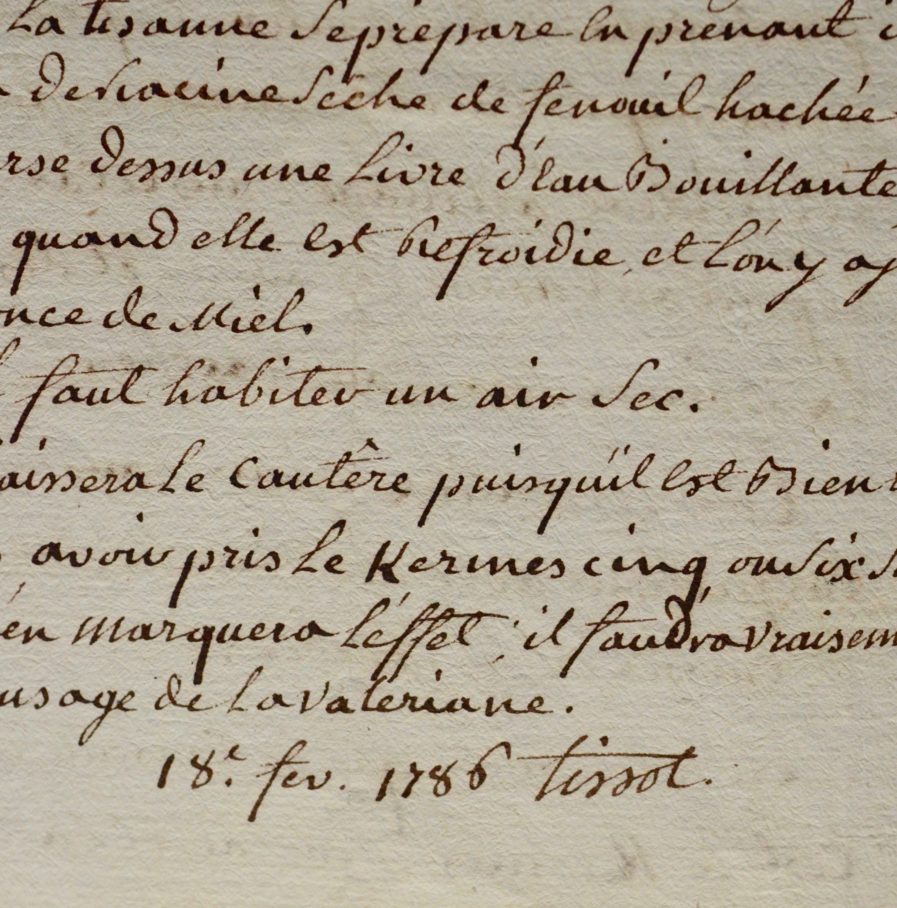 La tisanne se prépare en prenant
de racine séche de fenouil hachée
rse dessus une livre d'eau Bouillante
quand elle est refroidie, et l'on y aj
once de Miel.
faut habiter un air sec.
aissera le Cautêre puisqu'il est Bien
avoir pris le Kermes cinq ou six
én marquera l'éffet, il faudra vraisem
usage de la valériane.
18.e fev. 1786 tissot.